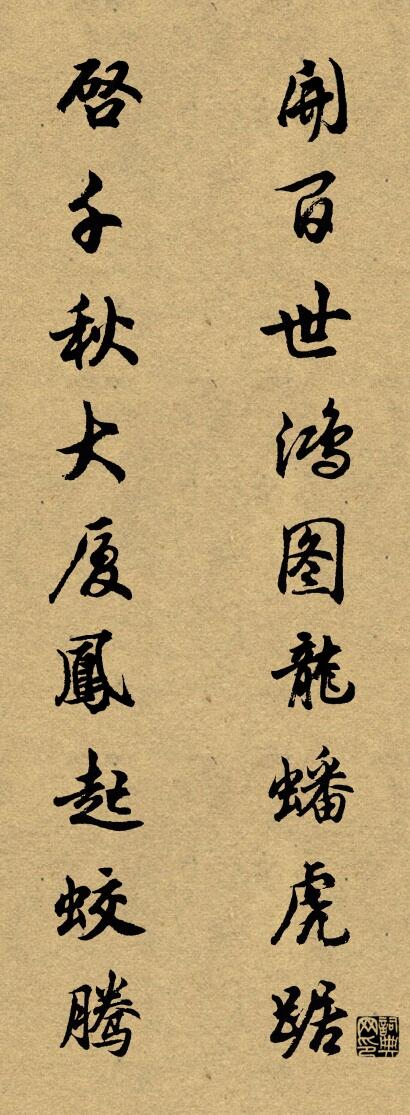 開百世鴻图龍蟠虎踞
啓千秋大厦鳳起蛟騰
詞典网印